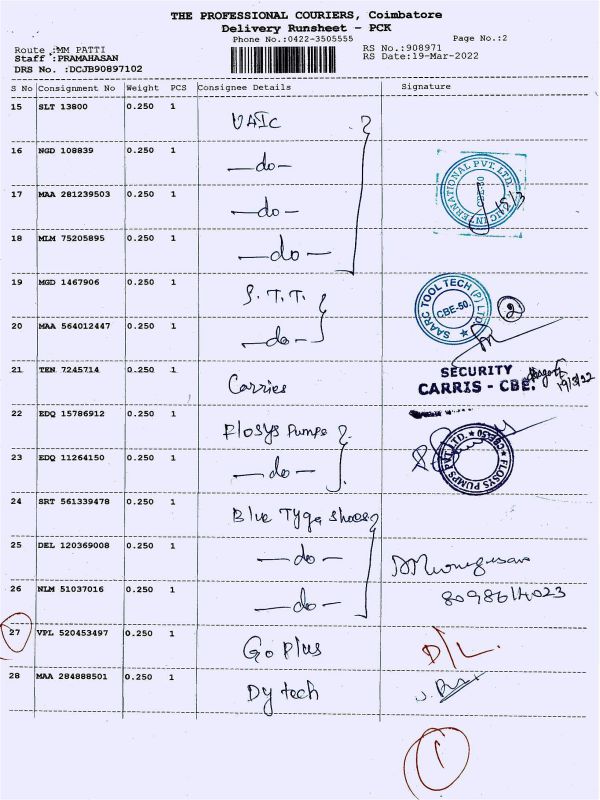 THE PROFESSIONAL COURIERS, Coimbatore
Delivery Runsheet - PCK
Phone No.:0422-3505555
Page No.:2
Route :MM PATTI
RS No.:908971
Staff :PRAMAHASAN
RS Date:19-Mar-2022
DRS No. :DCJB90897102
S No Consignment No Weight PCS Consignee Details Signature
15 SLT 13800 0.250 1 VAIC
16 NGD 108839 0.250 1 —do—
INTERNATIONAL PVT. LTD.
CBE-50
17 MAA 281239503 0.250 1 —do—
18 MLM 75205895 0.250 1 —do—
19 MGD 1467906 0.250 1 S.T.T.
SAARC TOOL TECH (P) LTD.
CBE-50.
2
20 MAA 564012447 0.250 1 —do—
21 TEN 7245714 0.250 1 Carries
SECURITY
CARRIS - CBE.
19/3/22
22 EDQ 15786912 0.250 1 Flosys Pumps
FLOSYS PUMPS PVT. LTD.
CBE50
23 EDQ 11264150 0.250 1 —do—
24 SRT 561339478 0.250 1 Blue Tyga Shoes
25 DEL 120369008 0.250 1 —do—
26 NLM 51037016 0.250 1 —do—
8098614023
27 VPL 520453497 0.250 1 Go Plus D/L.
28 MAA 284888501 0.250 1 Dy tech
1